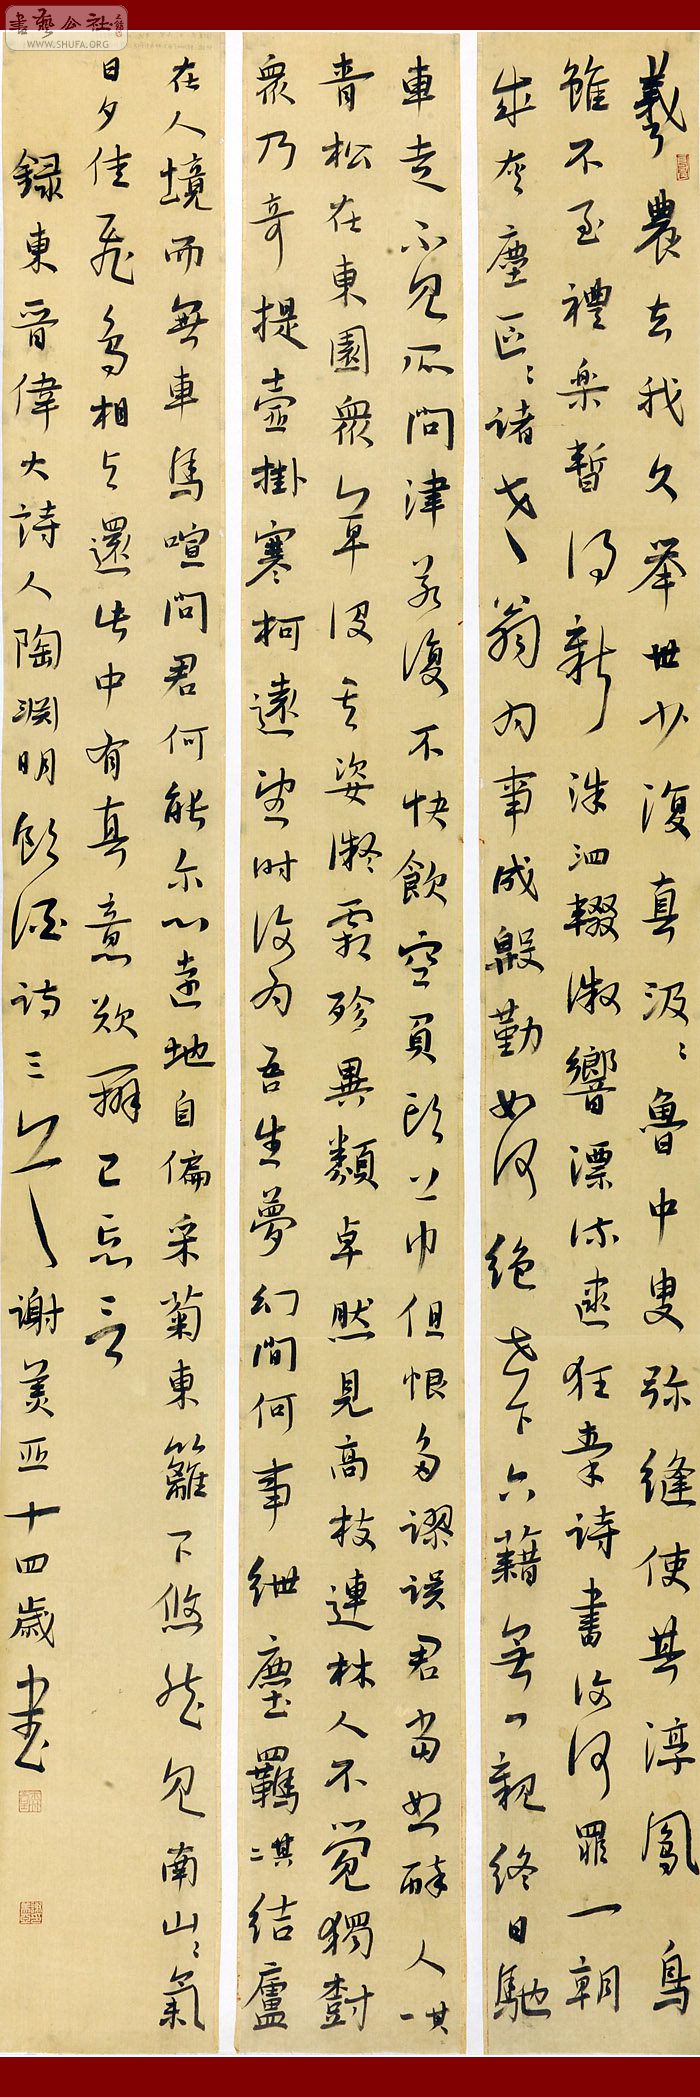 書藝公社
WWW.SHUFA.ORG
羲農去我久舉世少復真汲〻魯中叟弥縫使其淳鳳鳥
雖不至禮楽暫得新洙泗輟微響漂流逮狂秦詩書復何罪一朝
成灰塵区〻諸老翁为事成殷勤如何絶世下六籍無一親終日馳
車走不見所問津若復不快飲空負頭上巾但恨多謬誤君當恕醉人其一
青松在東園衆草没其姿凝霜殄異類卓然見高枝連林人不覺獨樹
衆乃奇提壺掛寒柯遠望时復为吾生夢幻間何事紲塵羈其二結廬
在人境而無車馬喧問君何能尔心遠地自偏采菊東籬下悠然見南山〻氣
日夕佳飛鳥相与還此中有真意欲辨已忘言
録東晋偉大詩人陶渊明飲酒诗三首謝美亚十四歲書